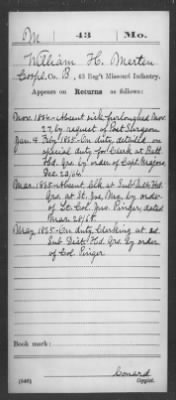 M 43 Mo.
William H. Merten
Corpl, Co. B, 43 Reg't Missouri Infantry.
Appears on Returns as follows:
Nov. 1864 - Absent sick furloughed Nov.
27, by request of Post Surgeon
Jan. & Feb 1865 - On duty, detailed on
special duty for Clerk at
Hd. Qrs. by order of Capt.
Dec 23/64.
Mar. 1865 - Absent, Clk at Sub Dist Hd
Qrs. at St. Joe, Mo, by order
of Lt. Col. Jno. Pinger, dated
Mar. 28/65.
May 1865 - On duty, clerking at
Sub Dist. Hd. Qrs. by order
of Col. Pinger
Book mark:
(546)
Conard
Copyist.